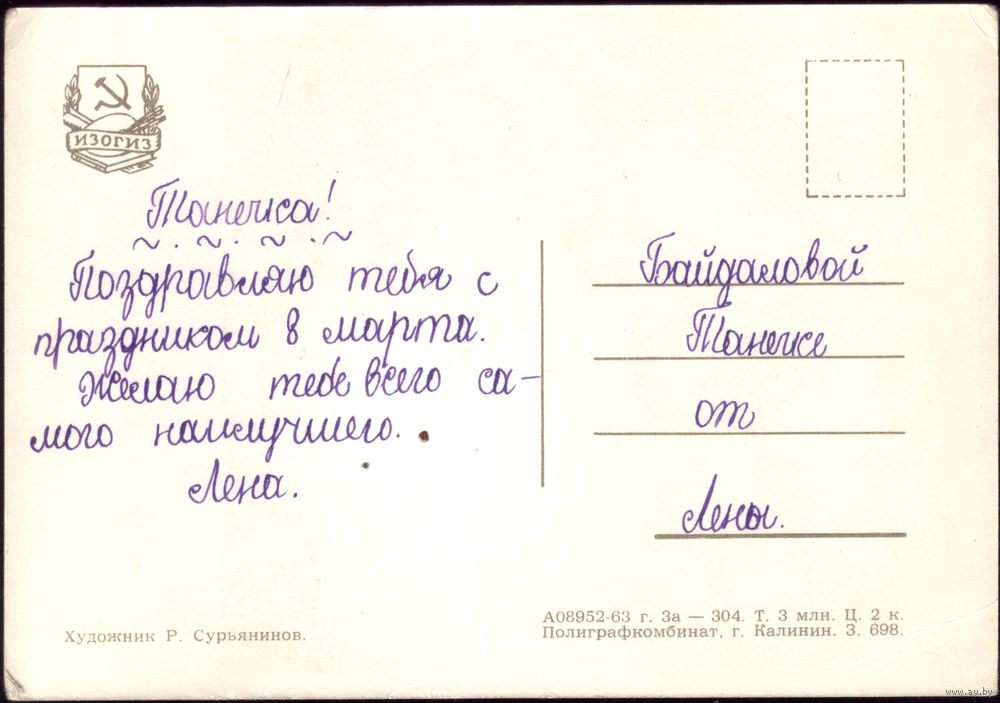 ИЗОГИЗ
Танечка!
Поздравляю тебя с
праздником 8 марта.
Желаю тебе всего са-
мого наилучшего.
Лена.
Байдаловой
Танечке
от
Лены.
Художник Р. Сурьянинов.
А08952-63 г. За — 304. Т. 3 млн. Ц. 2 к.
Полиграфкомбинат, г. Калинин. З. 698.
www.ay.by